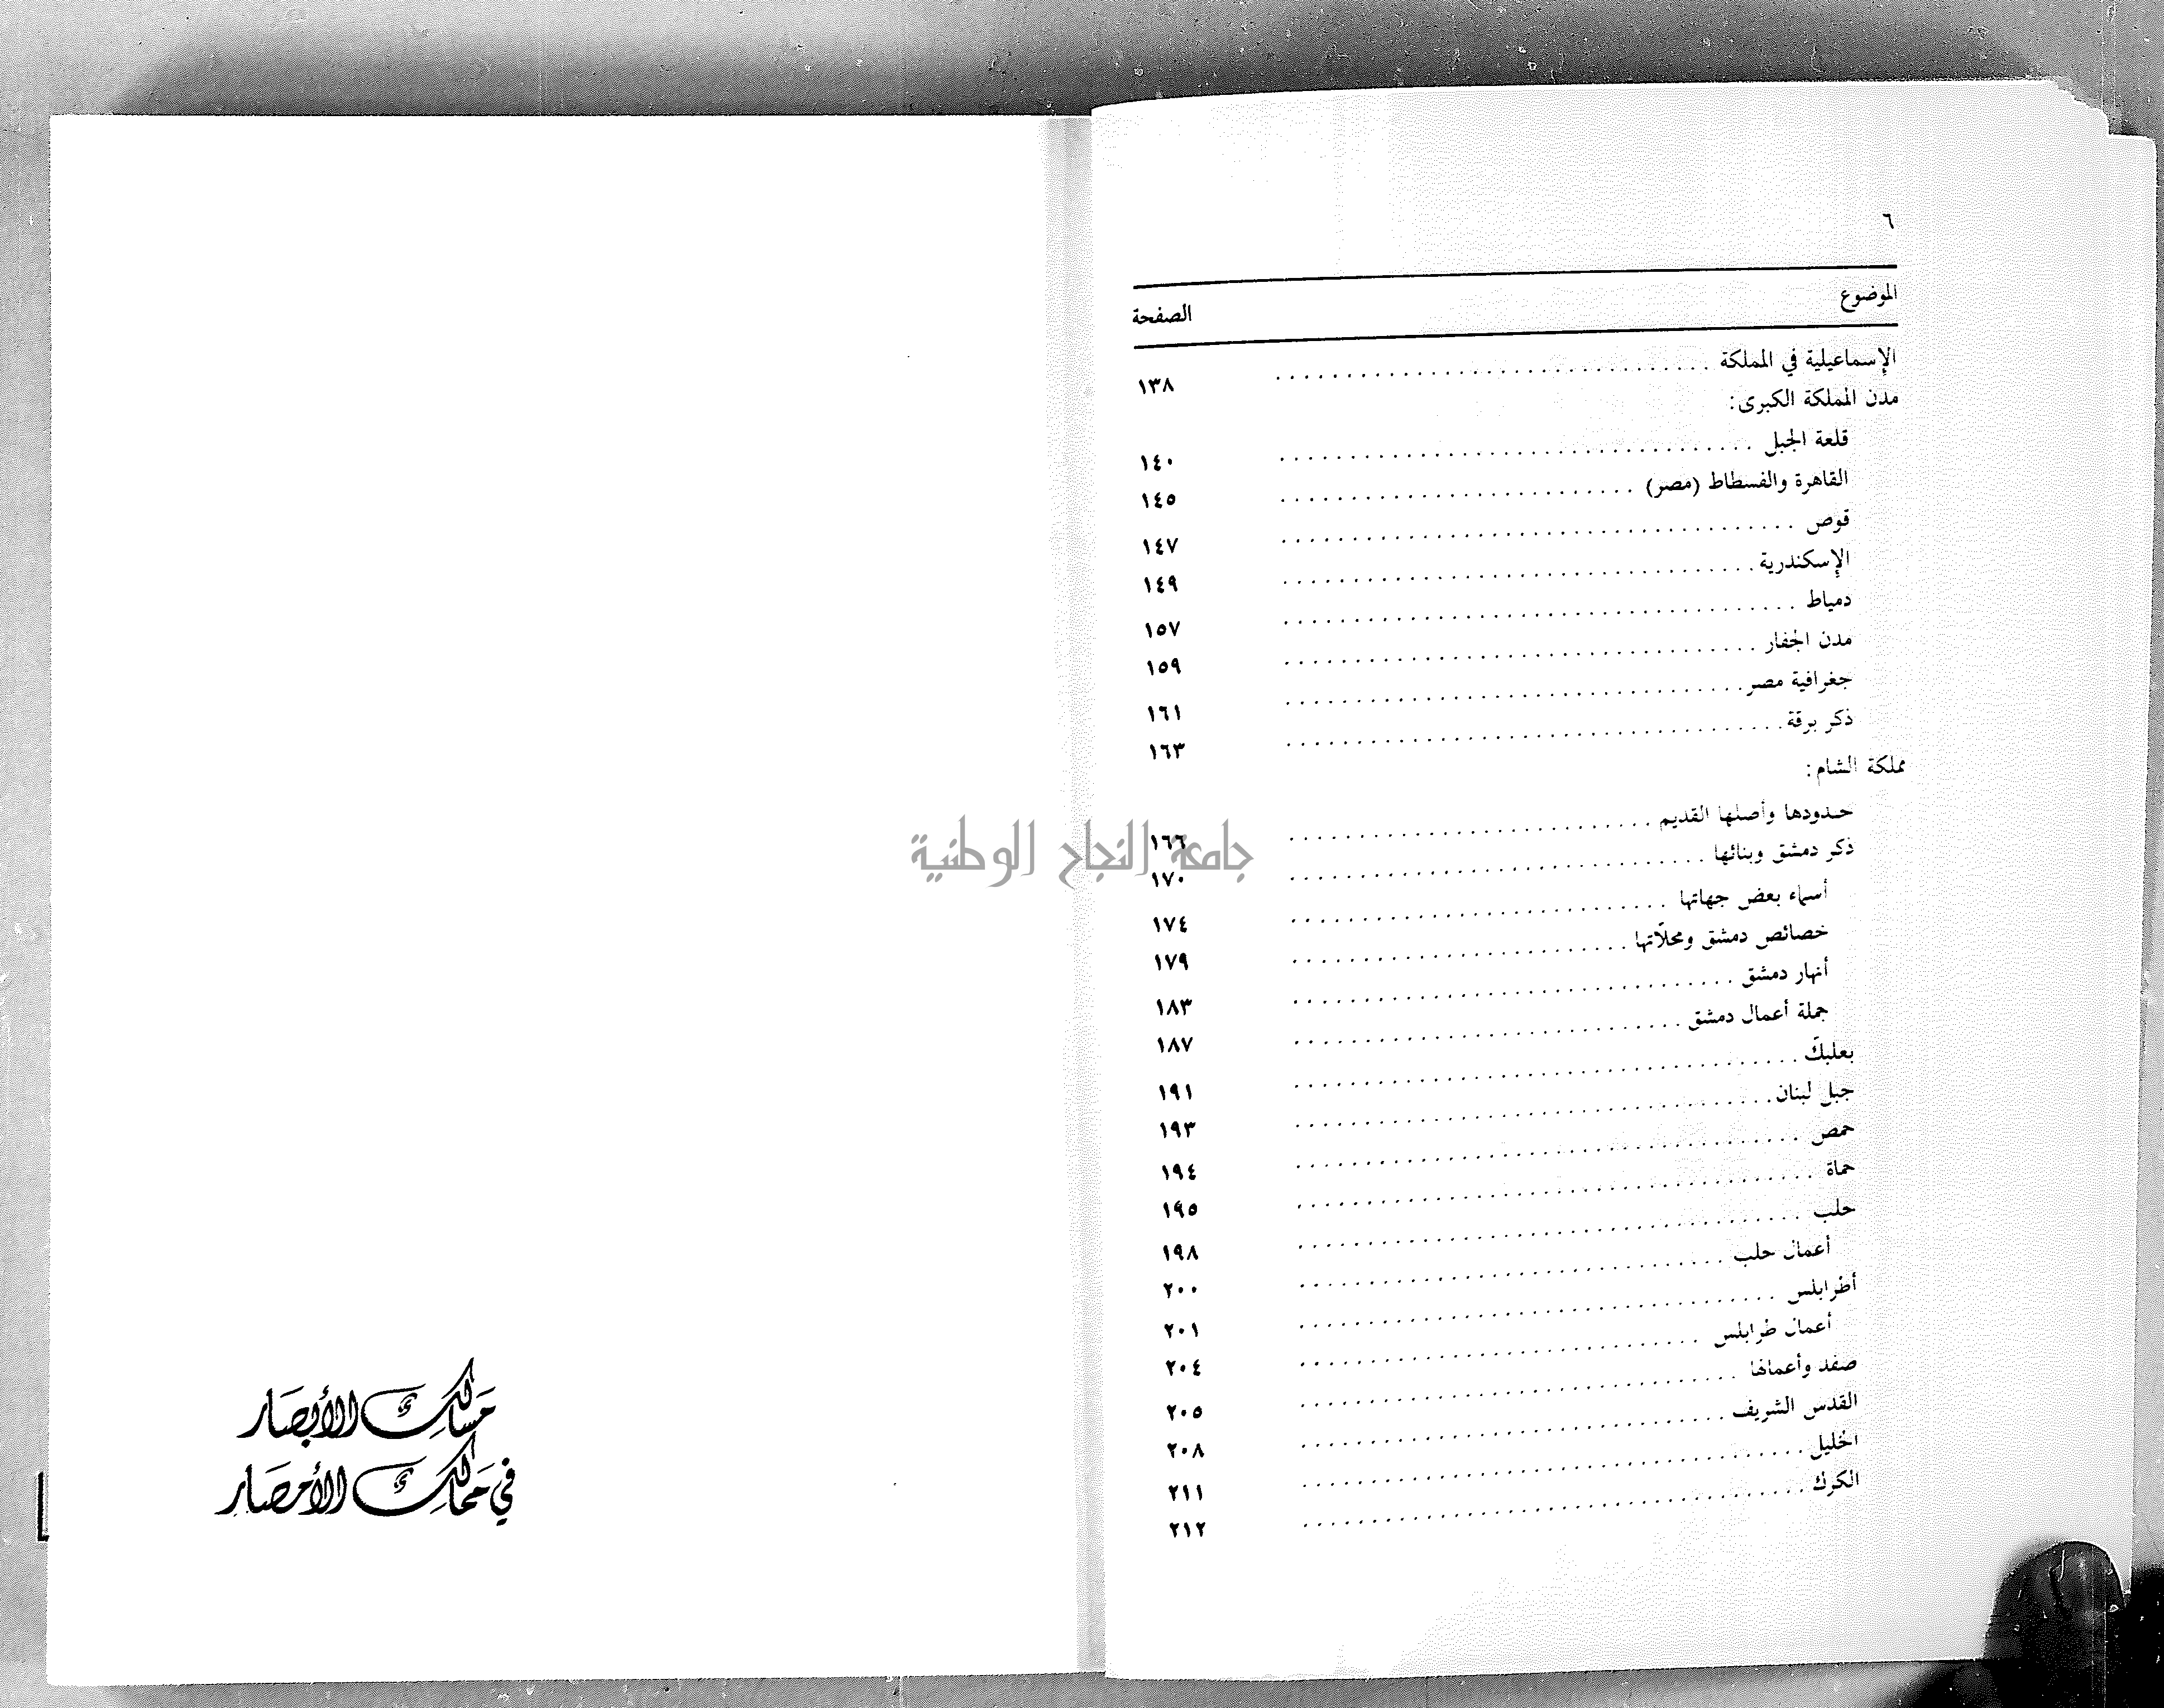 ٦
الموضوع الصفحة
الإسماعيلية في المملكة ١٣٨
مدن المملكة الكبرى:
قلعة الجبل ١٤٠
القاهرة والفسطاط (مصر) ١٤٥
قوص ١٤٧
الإسكندرية ١٤٩
دمياط ١٥٧
مدن الجفار ١٥٩
جغرافية مصر ١٦١
ذكر برقة ١٦٣
مملكة الشام:
حدودها وأصلها القديم ١٦٦
ذكر دمشق وبنائها ١٧٠
أسماء بعض جهاتها ١٧٤
خصائص دمشق ومحلاّتها ١٧٩
أنهار دمشق ١٨٣
جملة أعمال دمشق ١٨٧
بعلبكّ ١٩١
جبل لبنان ١٩٣
حمص ١٩٤
حماة ١٩٥
حلب ١٩٨
أعمال حلب ٢٠٠
أطرابلس ٢٠١
أعمال طرابلس ٢٠٤
صفد وأعمالها ٢٠٥
القدس الشريف ٢٠٨
الخليل ٢١١
الكرك ٢١٢
جامعة النجاح الوطنية
مَسَالِكُ الأَبْصَار
فِي مَمَالِكِ الأَمْصَارِ